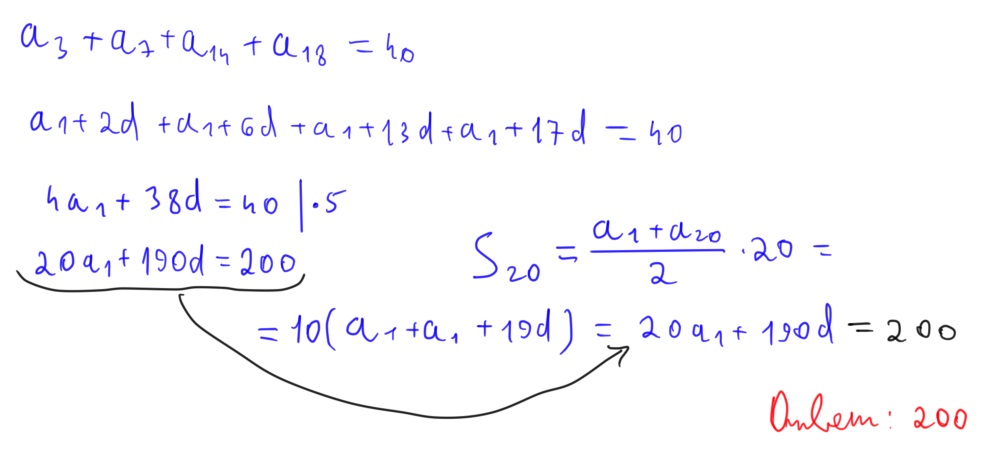 a₃ + a₇ + a₁₄ + a₁₈ = 40
a₁ + 2d + a₁ + 6d + a₁ + 13d + a₁ + 17d = 40
4a₁ + 38d = 40 | · 5
20a₁ + 190d = 200
S₂₀ = (a₁ + a₂₀)/2 · 20 =
= 10(a₁ + a₁ + 19d) = 20a₁ + 190d = 200
Ответ: 200